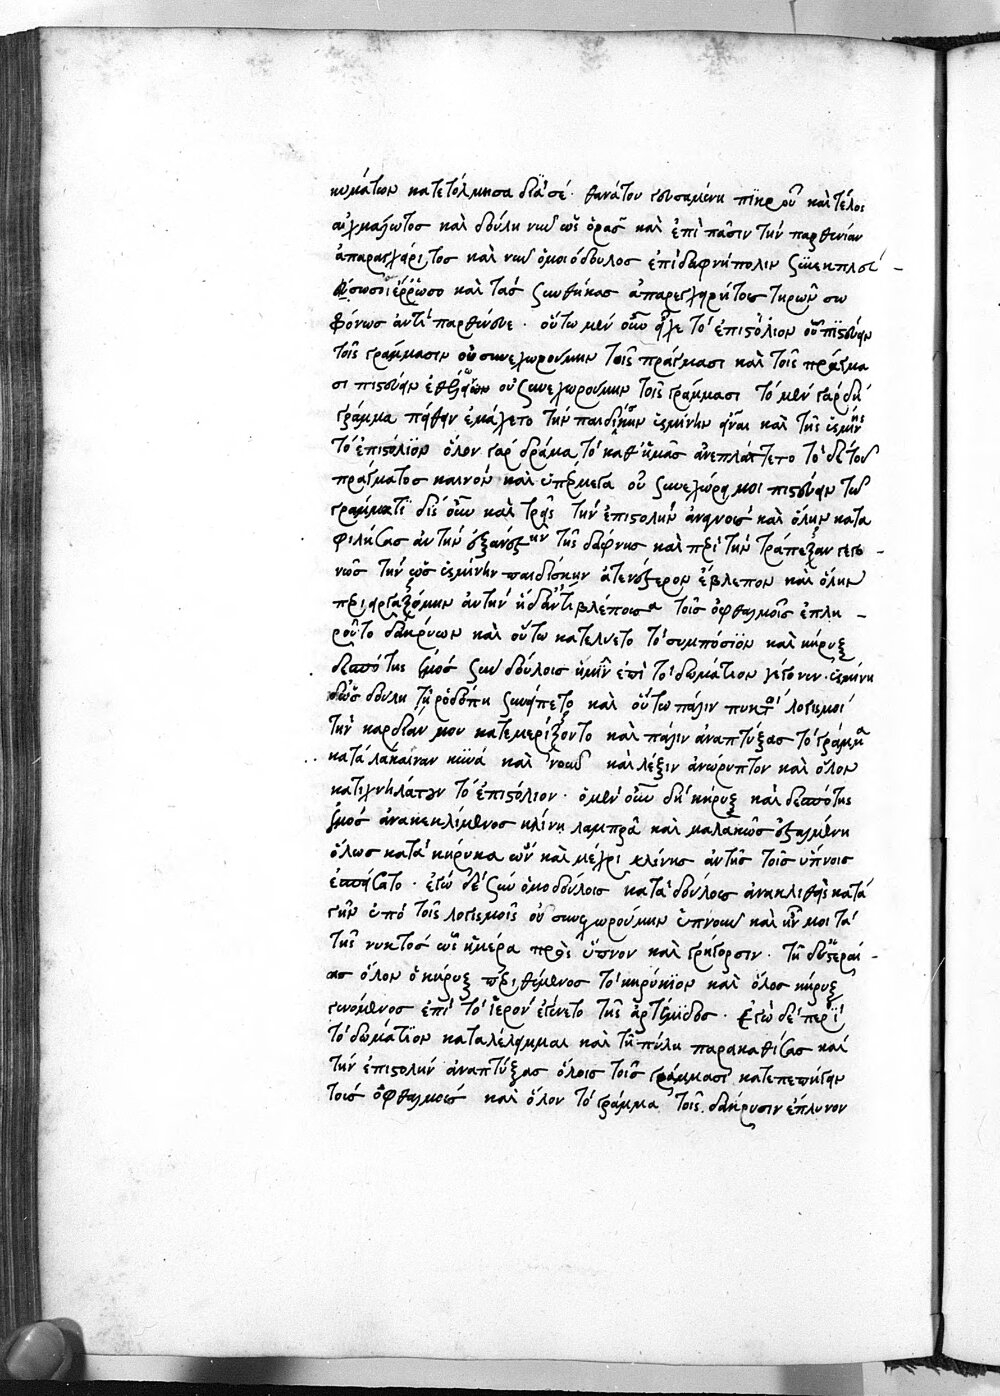 κυμάτων κατετόλμησα διὰ σέ· θανάτου ἐρυσαμένη πικροῦ καὶ τέλος
αἰχμάλωτος καὶ δούλη νῦν ὡς ὁρᾷς καὶ ἐπὶ πᾶσιν τὴν παρθενίαν
ἀπαραχάρακτος καὶ νῦν ὁμοιόδουλος ἐπὶ δαφνήπολιν
ἔρρωσο καὶ τὰς συνθήκας ἀπαρεγχειρήτους τηρῶν σω
φρόνως ἀντιπαρθένευε· οὕτω μὲν οὖν εἶχε τὸ ἐπιστόλιον οὐ πιστεύειν
τοῖς γράμμασιν οὐ συνεχωρούμην τοῖς πράγμασι καὶ τοῖς πράγμα
σι πιστεύειν ἐθέλων οὐ συνεχωρούμην τοῖς γράμμασι τὸ μὲν γὰρ δὴ
γράμμα πείθειν ἐμάχετο τὴν παιδίσκην ὑσμίνην εἶναι καὶ τῆς ὑσμίνης
τὸ ἐπιστόλιον ὅλον γὰρ δρᾶμα τὸ καθ' ἡμᾶς ἀνεπλάττετο τὸ δὲ τοῦ
πράγματος καινὸν καὶ ὑπέρμεγα οὐ συνεχώρει μοι πιστεύειν τῷ
γράμματι δὶς οὖν καὶ τρὶς τὴν ἐπιστολὴν ἀναγνοὺς καὶ ὅλην κατα
φιλήσας αὐτὴν τῆς δάφνης καὶ περὶ τὴν τράπεζαν γεγο-
νὼς τὴν ὡς ὑσμίνην παιδίσκην ἀτενέστερον ἔβλεπον καὶ ὅλην
περιειργαζόμην αὐτὴν ἡ δ' ἀντιβλέπουσα τοῖς ὀφθαλμοῖς ἐπλη-
ροῦτο δακρύων καὶ οὕτω κατελύετο τὸ συμπόσιον καὶ κήρυξ
δεσπότης ἐμὸς σὺν δούλοις ἡμῖν ἐπὶ τὸ δωμάτιον γέγονεν· ὑσμίνη
δ' ὡς δούλη τῇ ῥοδόπῃ συνείπετο καὶ οὕτω πάλιν πυκνοὶ λογισμοὶ
τὴν καρδίαν μου κατεμερίζοντο καὶ πάλιν ἀναπτύξας τὸ γράμμα
κατὰ λάκαιναν κύνα καὶ νοῦν καὶ λέξιν ἀνώρυττον καὶ ὅλον
κατιχνηλάτουν τὸ ἐπιστόλιον· ὁ μὲν οὖν δὴ κήρυξ καὶ δεσπότης
ἐμὸς ἀνακεκλιμένος κλίνῃ λαμπρᾷ καὶ μαλακῶς ἐσταλμένῃ
ὅλως κατὰ κήρυκα ὢν καὶ μέχρι κλίνης αὐτῆς τοῖς ὕπνοις
ἐσπάσατο· ἐγὼ δὲ σὺν ὁμοδούλοις κατὰ δούλους ἀνακλιθεὶς κατὰ
γῆν ὑπὸ τοῖς λογισμοῖς οὐ συνεχωρούμην ὑπνοῦν καὶ ἦν μοι τὰ
τῆς νυκτὸς ὡς ἡμέρα πρὸς ὕπνον καὶ ἐγρήγορσιν· τῇ δ' ὑστεραί-
ας ὅλον ὁ κήρυξ περιθέμενος τὸ κηρύκιον καὶ ὅλος κήρυξ
γενόμενος ἐπὶ τὸ ἱερὸν ἐγένετο τῆς ἀρτέμιδος· ἐγὼ δὲ περὶ
τὸ δωμάτιον καταλέλειμμαι καὶ τῇ πύλῃ παρακαθίσας καὶ
τὴν ἐπιστολὴν ἀναπτύξας ὅλοις τοῖς γράμμασι κατεπεπήγειν
τοῖς ὀφθαλμοῖς καὶ ὅλον τὸ γράμμα τοῖς δάκρυσιν ἔπλυνον